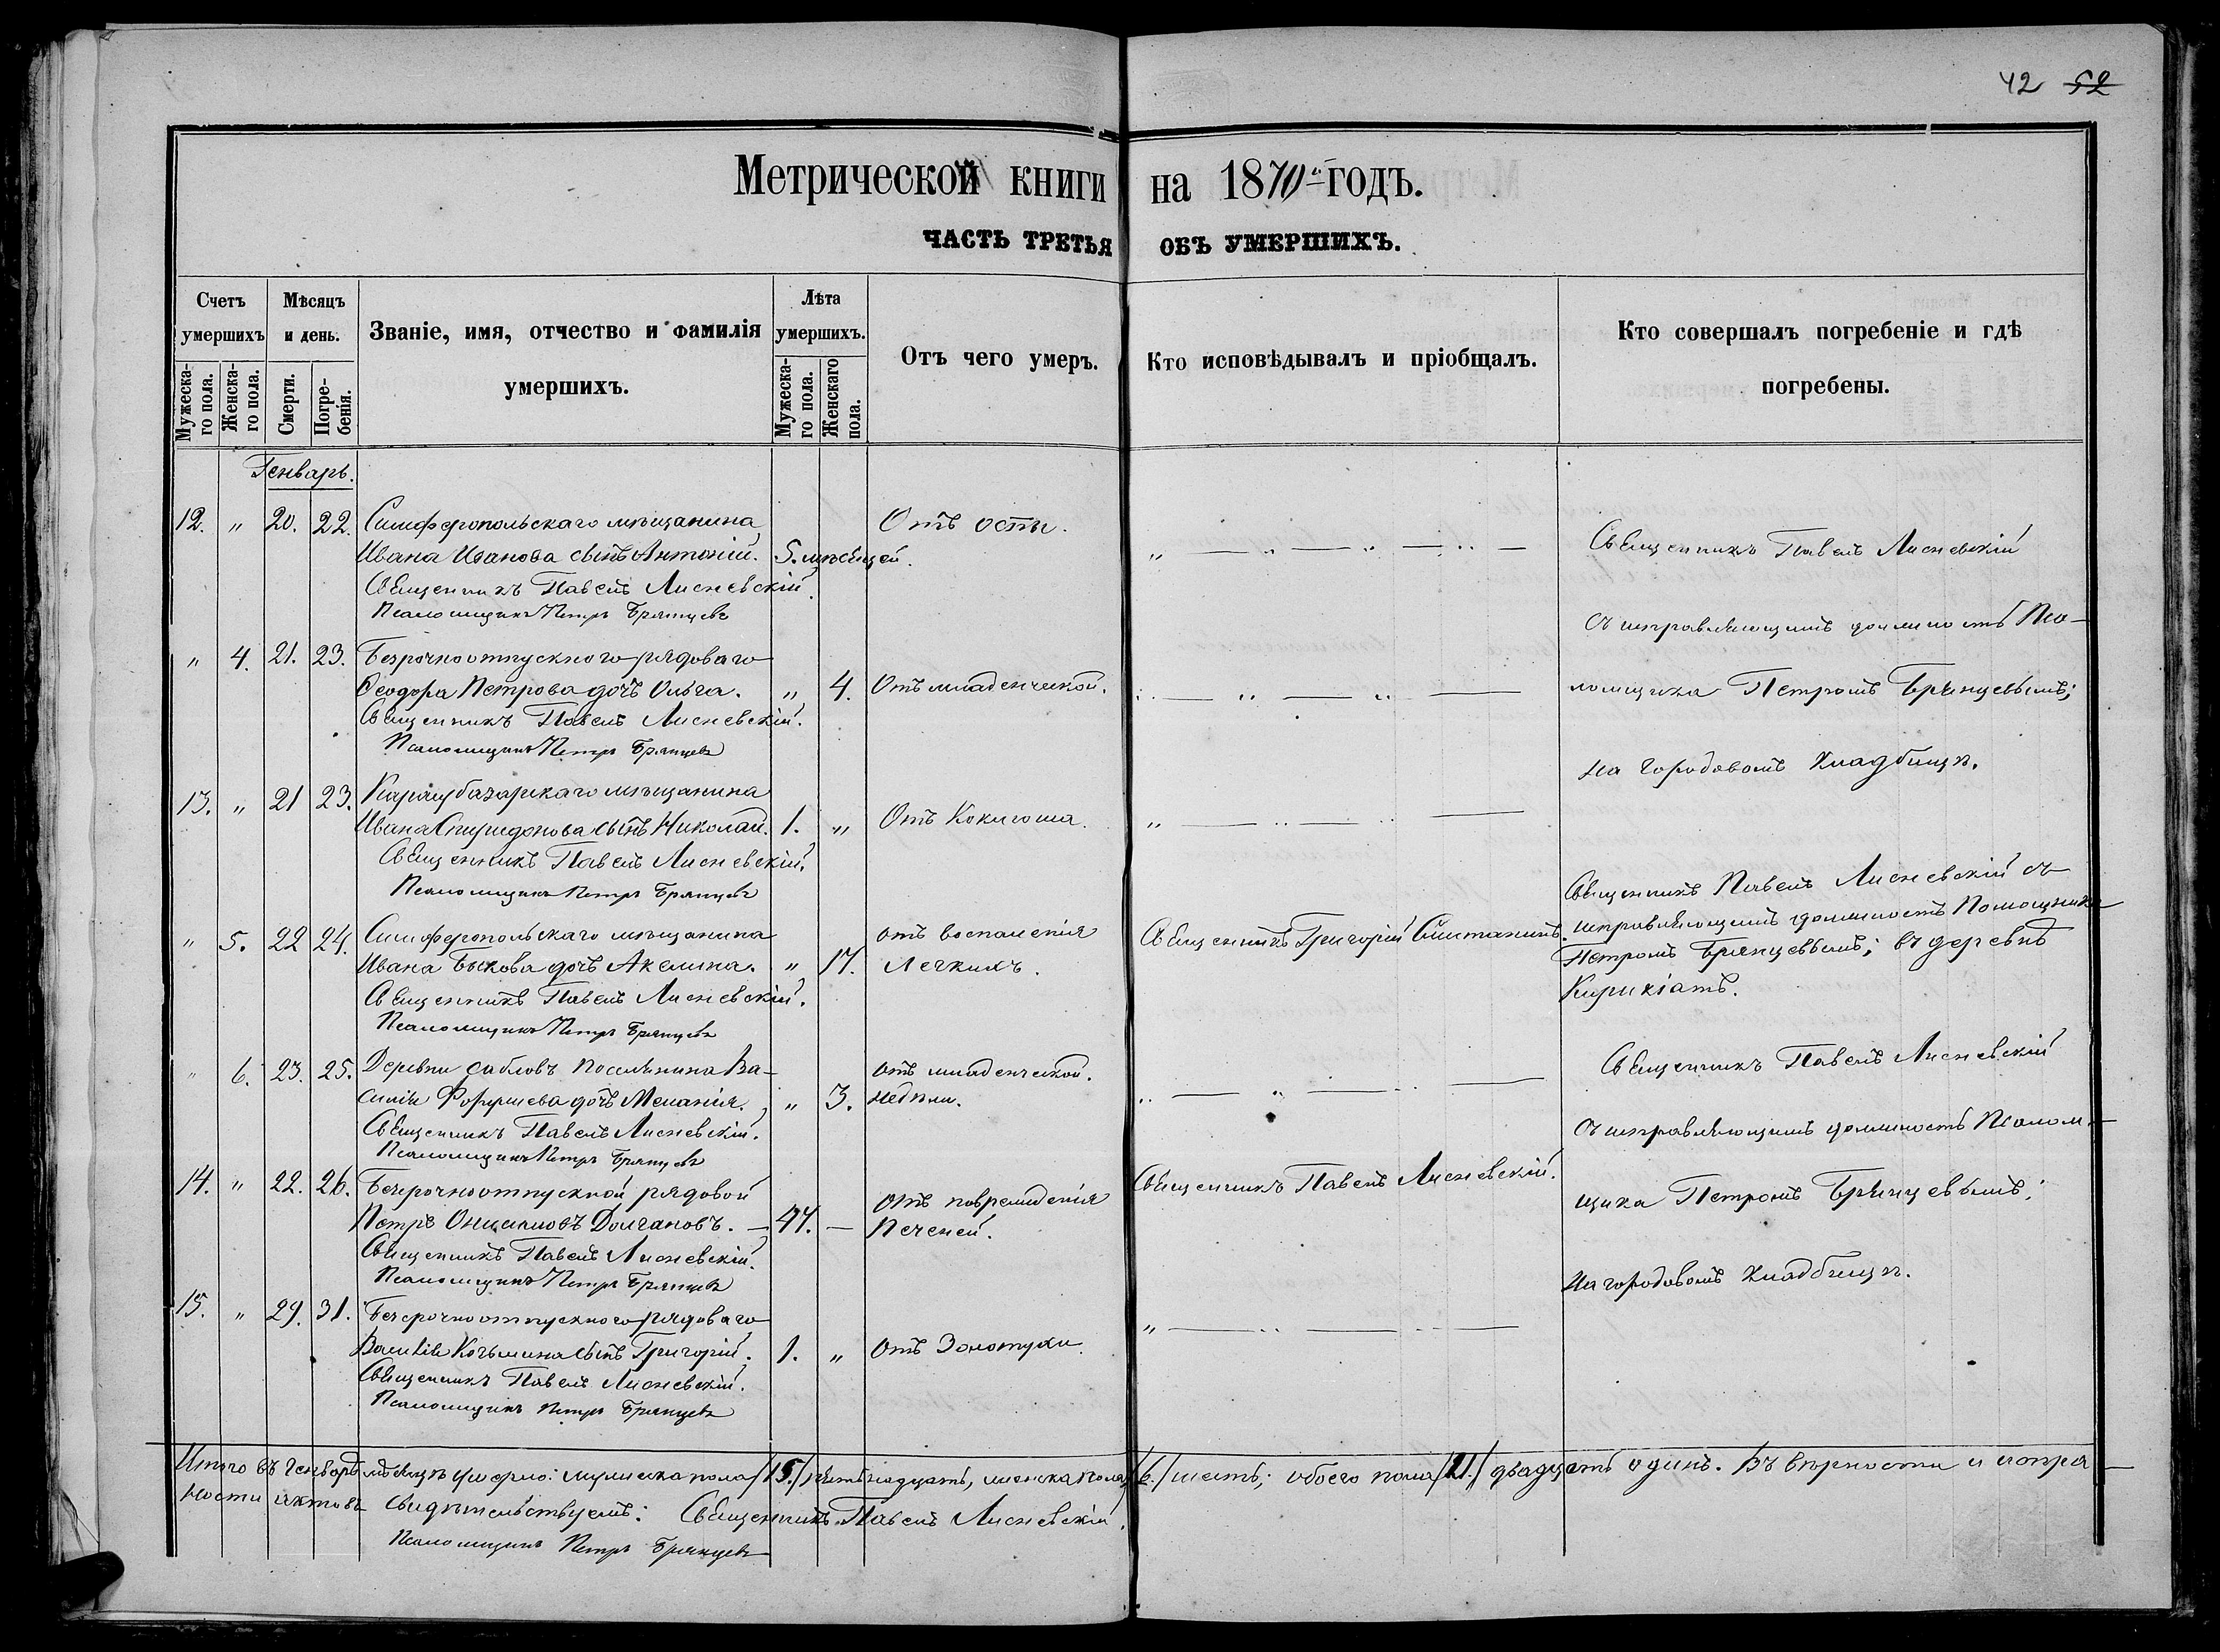 42 52
Метрической книги на 1870 годъ.
ЧАСТЬ ТРЕТЬЯ ОБЪ УМЕРШИХЪ.
Счетъ умершихъ
Мужеска-го пола.
Женска-го пола.
Мѣсяцъ и день.
Смерти.
Погре-бенія.
Званіе, имя, отчество и фамилія умершихъ.
Лѣта умершихъ.
Мужеска-го пола.
Женскаго пола.
Отъ чего умеръ.
Кто исповѣдывалъ и пріобщалъ.
Кто совершалъ погребеніе и гдѣ погребены.
Генварь.
12. " 20. 22. Симферопольскаго мѣщанина Отъ оспы.
Ивана Иванова сынъ Антоній. 5. мѣсяцей.
Священникъ Павелъ Лисневскій.
Псаломщикъ Петръ Брянцевъ
Священникъ Павелъ Лисневскій
съ исправляющимъ должность Пса-
ломщика Петромъ Брянцевымъ;
на городовомъ кладбищѣ.
" 4. 21. 23. Безсрочноотпускного рядоваго
Ѳеодора Петрова дочь Ольга. " 4. Отъ младенческой.
Священникъ Павелъ Лисневскій.
Псаломщикъ Петръ Брянцевъ
13. " 21 23. Карасубазарскаго мѣщанина
Ивана Спиридонова сынъ Николай. 1. " Отъ Коклюша.
Священникъ Павелъ Лисневскій.
Псаломщикъ Петръ Брянцевъ
" 5. 22 24. Симферопольскаго мѣщанина отъ воспаленія
Ивана Быкова дочь Акелина. " 17. Легкихъ.
Священникъ Павелъ Лисневскій.
Псаломщикъ Петръ Брянцевъ
Священникъ Григорій
Священникъ Павелъ Лисневскій съ
исправляющимъ должность Помощника
Петромъ Брянцевымъ; въ деревнѣ
" 6. 23. 25. Деревни Сабловъ Поселянина Ва- отъ младенческой.
силія дочь Меланія. " 3. недѣли.
Священникъ Павелъ Лисневскій.
Псаломщикъ Петръ Брянцевъ
Священникъ Павелъ Лисневскій
съ исправляющимъ должность Псалом-
щика Петромъ Брянцевымъ;
на городовомъ кладбищѣ.
14. " 22. 26. Безсрочноотпускной рядовой Отъ поврежденія
Петръ Онисимовъ Долгановъ. — 47. — Печеней.
Священникъ Павелъ Лисневскій.
Псаломщикъ Петръ Брянцевъ
Священникъ Павелъ Лисневскій.
15. " 29. 31. Безсрочноотпускного рядоваго
Василія Козьмина сынъ Григорій. 1. " Отъ Золотухи.
Священникъ Павелъ Лисневскій.
Псаломщикъ Петръ Брянцевъ
Итого въ Генварѣ мѣсяцѣ умерло: мужеска пола /15./ пятьнадцать, женска пола /6./ шесть; обоего пола /21./ двадцать одинъ. Въ вѣрности и исправ-
ности актовъ свидѣтельствуемъ: Священникъ Павелъ Лисневскій.
Псаломщикъ Петръ Брянцевъ